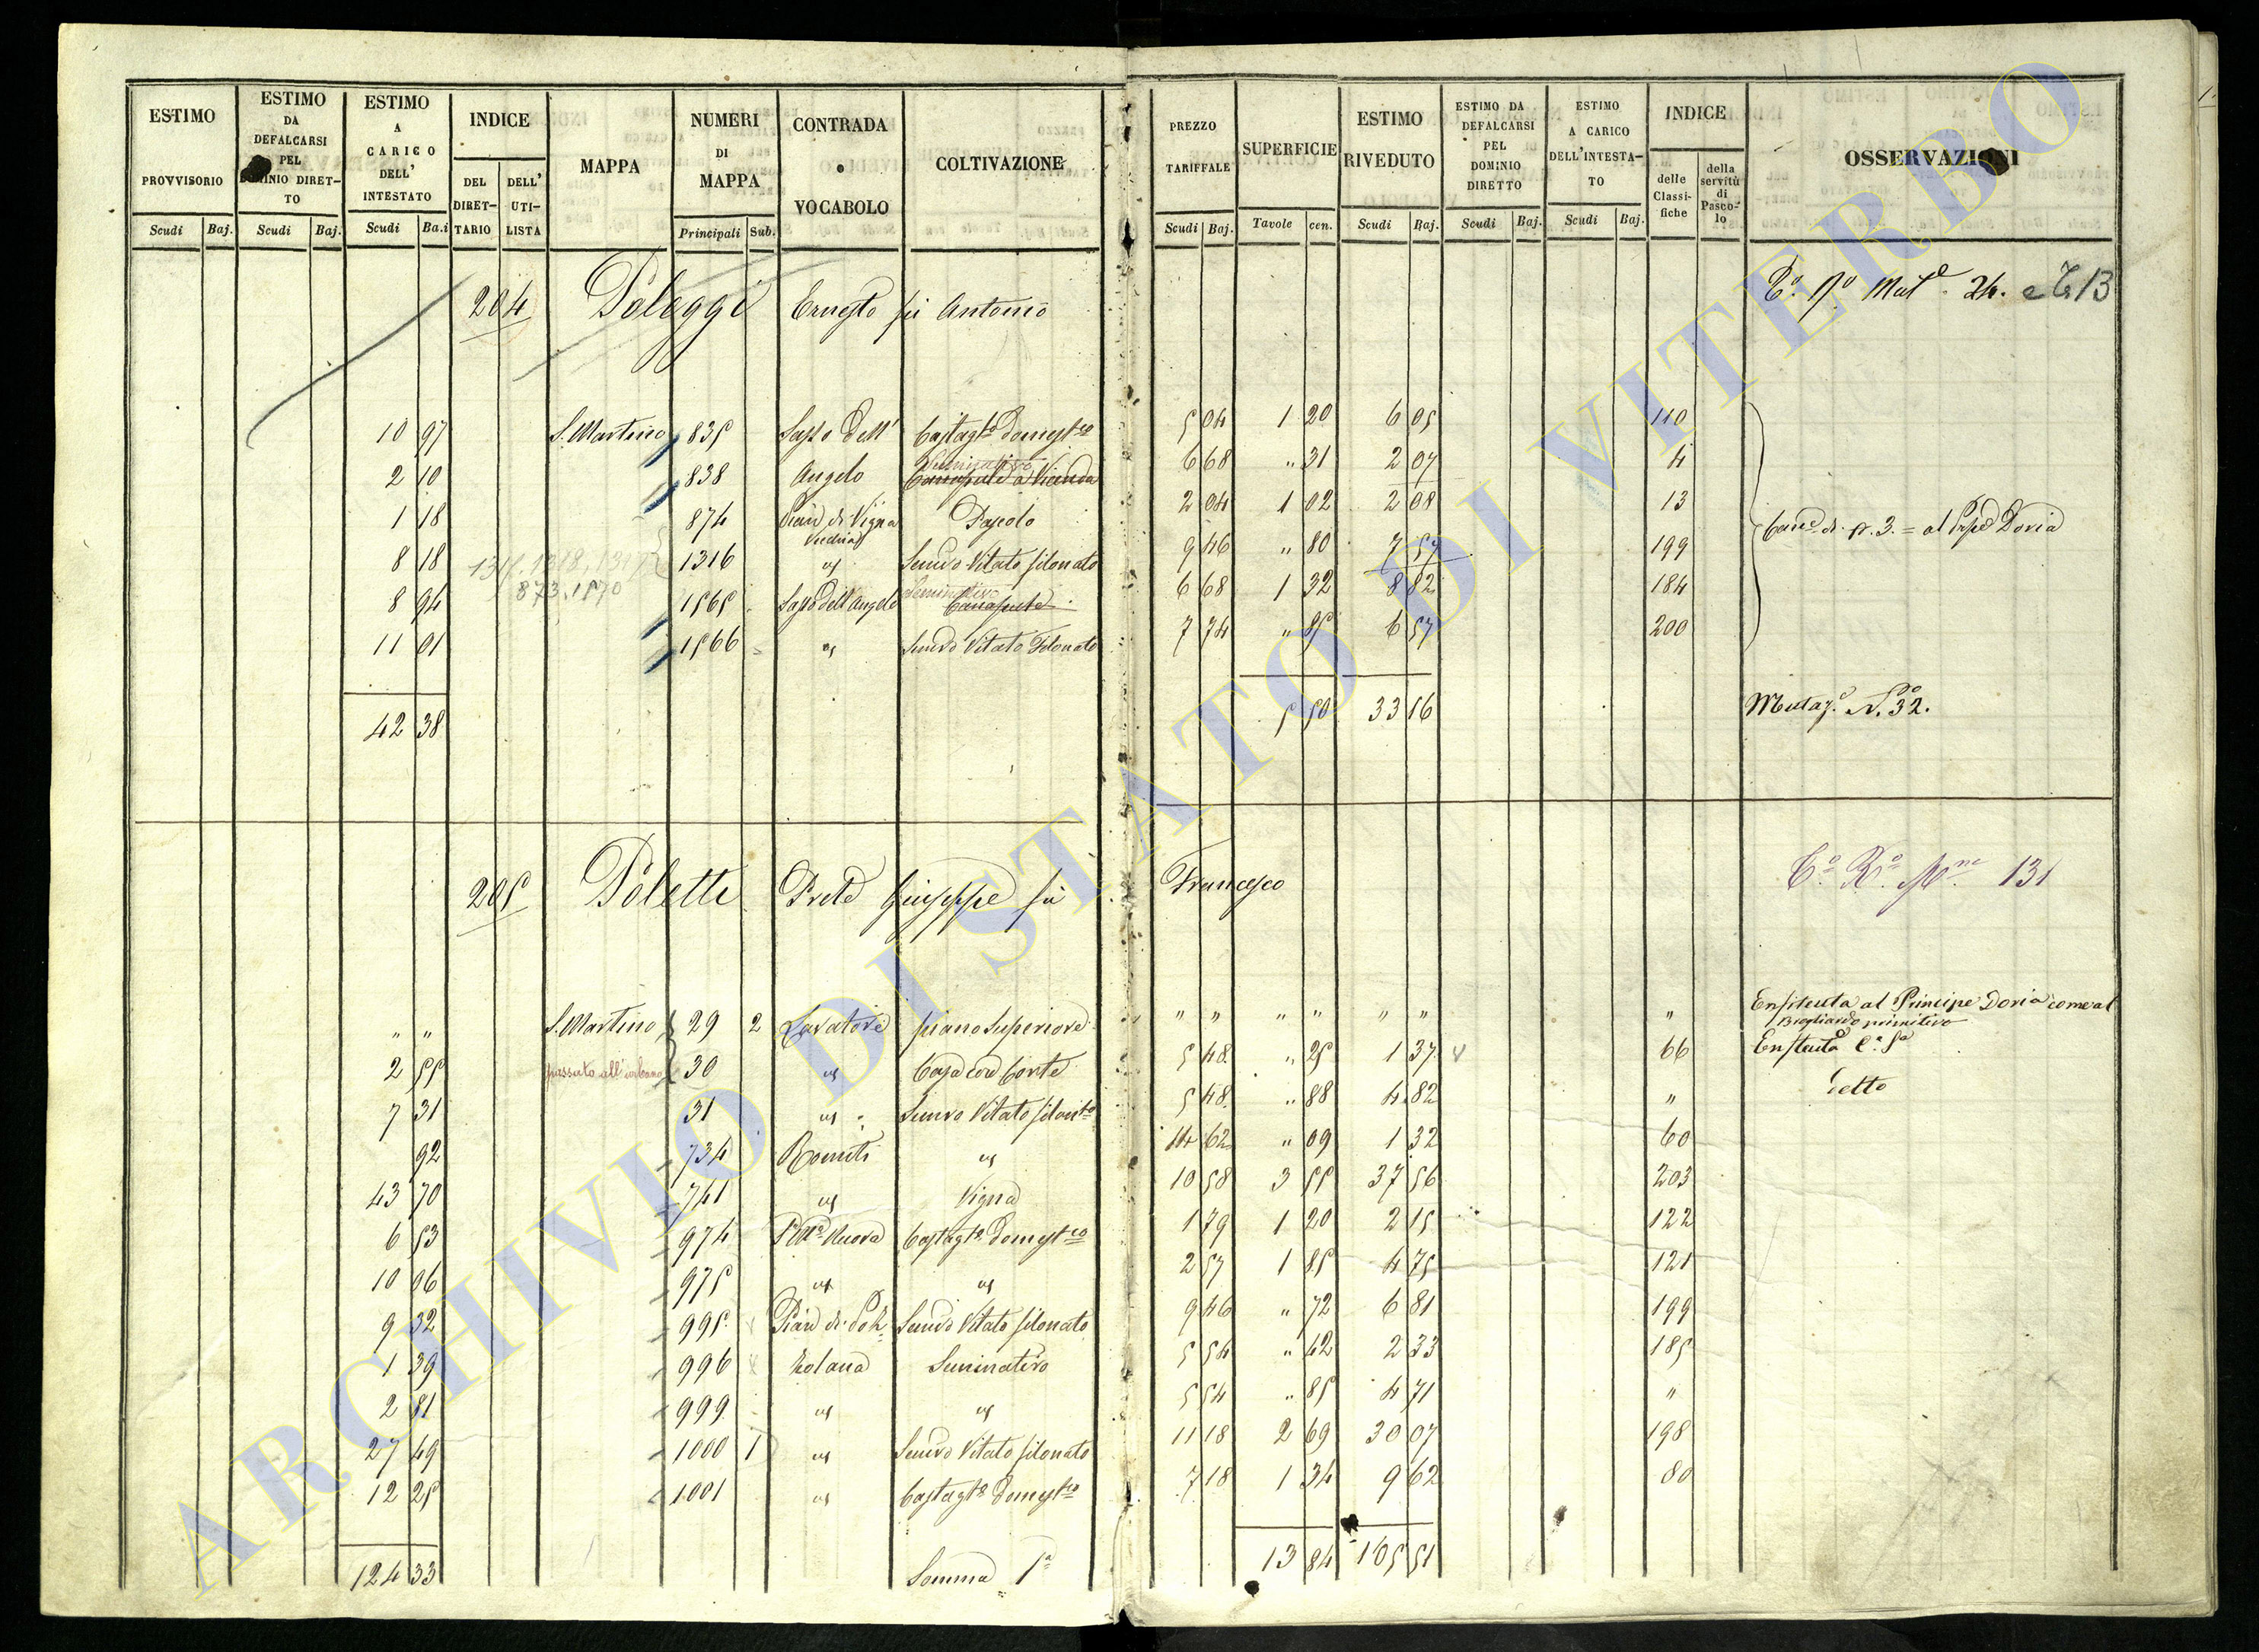 ESTIMO PROVVISORIO Scudi Baj.
ESTIMO DA DEFALCARSI PEL DOMINIO DIRET-TO Scudi Baj.
ESTIMO A CARICO DELL' INTESTATO Scudi Ba.i
INDICE DEL DIRET-TARIO DELL' UTI-LISTA
MAPPA
NUMERI DI MAPPA Principali Sub.
CONTRADA o VOCABOLO
COLTIVAZIONE
PREZZO TARIFFALE Scudi Baj.
SUPERFICIE Tavole cen.
ESTIMO RIVEDUTO Scudi Baj.
ESTIMO DA DEFALCARSI PEL DOMINIO DIRETTO Scudi Baj.
ESTIMO A CARICO DELL'INTESTA-TO Scudi Baj.
INDICE delle Classi-fiche della servitù di Pasco-lo
OSSERVAZIONI
204 Poleggi Ernesto fu Antonio
10 97 S. Martino 835 Sasso dell' Castagto domestco 5 04 1 20 6 05 110
2 10 838 Angelo Seminativo 6 68 " 31 2 07 4
1 18 874 Pian di Vigna Vecchia Pascolo 2 04 1 02 2 08 13
8 18 1316 Semvo Vitato filonato 9 46 " 80 7 57 199
873. 1570
8 94 1565 Sasso dell'Angelo Seminativo 6 68 1 32 8 82 184
11 01 1566 Semvo Vitato Filonato 7 74 " 85 6 57 200
al Prpe Doria
42 38 5 50 33 16 Mutaz. N.º 32.
205 Poletti Prete Giuseppe fu Francesco 131
" " S. Martino 29 2 Lavatore piano Superiore " " " " " " " Enfiteuta al Principe Doria come al Brogliardo primitivo
2 55 passato all'urbano 30 Casa con Corte 5 48 " 25 1 37 66 Enfteuta
7 31 31 Semvo Vitato filonto 5 48 " 88 4 82 " Detto
92 734 Romiti 14 62 " 09 1 32 60
43 70 741 Vigna 10 58 3 55 37 56 203
6 53 974 Nuova Castagto domestco 1 79 1 20 2 15 122
10 96 975 2 57 1 85 4 75 121
9 32 995 Pian di Semvo Vitato filonato 9 46 " 72 6 81 199
1 39 996 Seminativo 5 54 " 42 2 33 185
2 81 999 5 54 " 85 4 71 "
27 49 1000 1 Semvo Vitato filonato 11 18 2 69 30 07 198
12 25 1001 Castagto domestco 7 18 1 34 9 62 80
124 33 Somma 1ª 13 84 105 51
ARCHIVIO DI STATO DI VITERBO